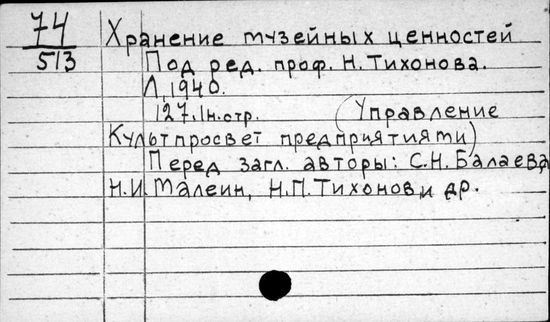 74
513
Хранение музейных ценностей
Под ред. проф. Н. Тихонова.
Л, 1940.
127, 1н. стр. (Управление
Культпросвет предприятияти)
Перед загл. авторы: С.Н. Балаева,
Н.И. Малеин, Н.П. Тихонов, и др.